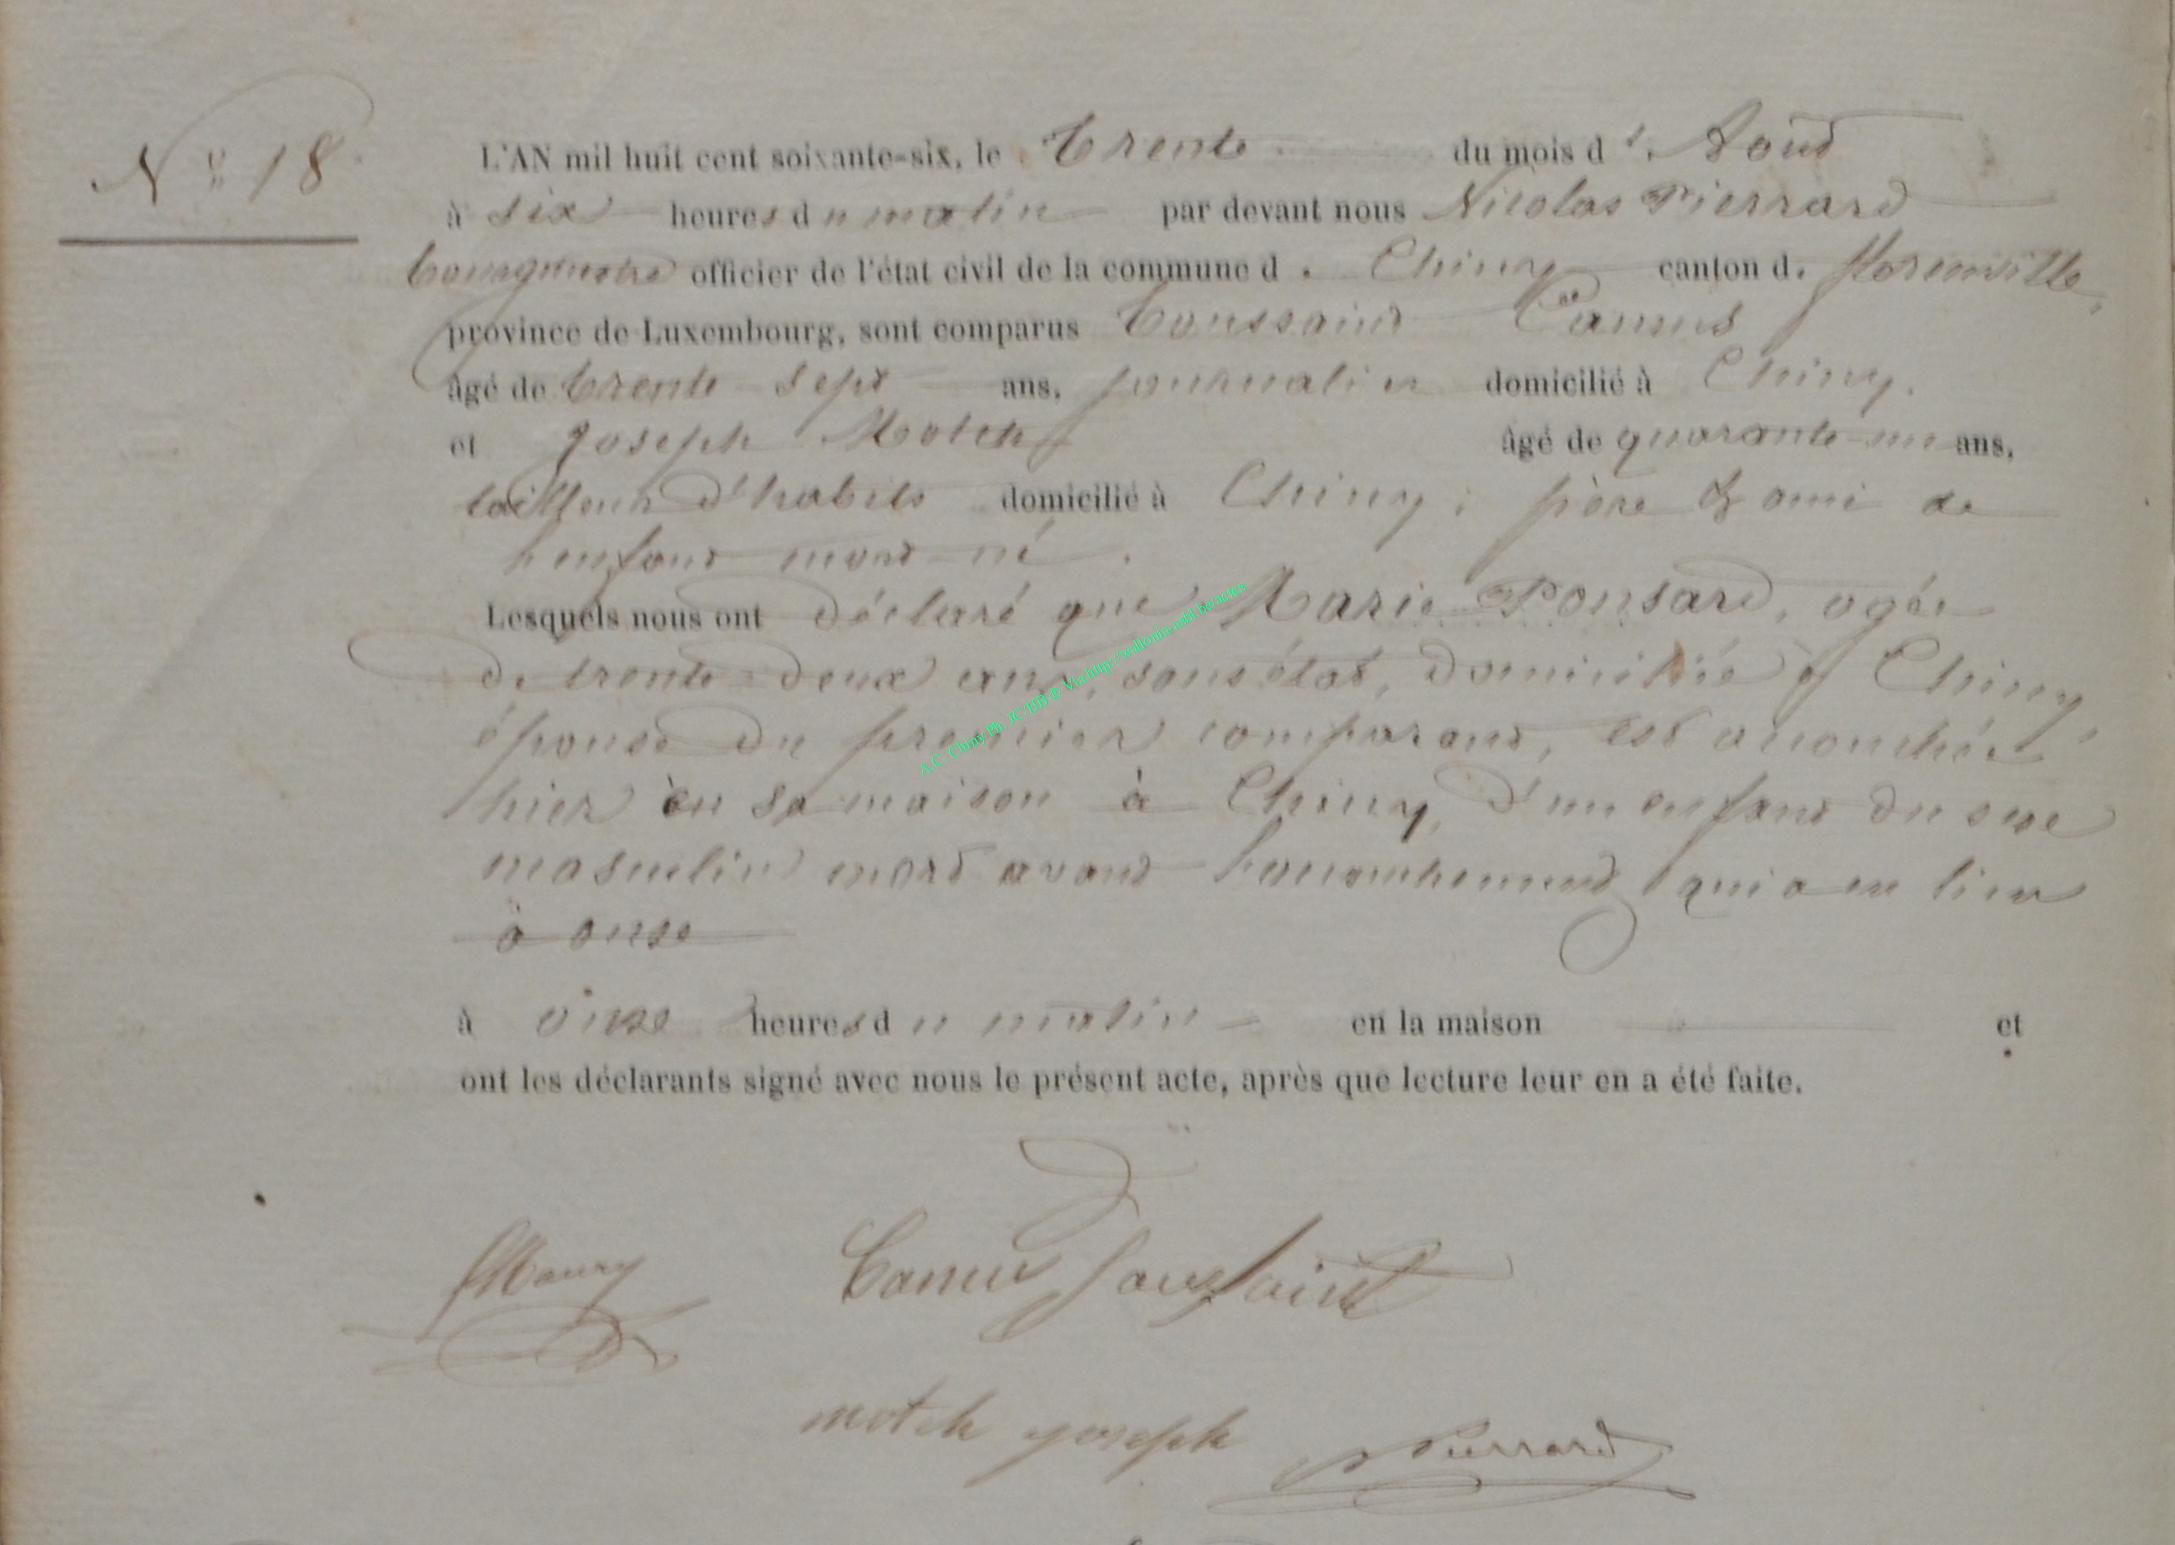 N° 18
L'AN mil huit cent soixante-six, le Trente du mois d'Aoùt
à six heures du matin par devant nous Nicolas Pierrard
bourgmestre officier de l'état civil de la commune de Chiny canton de Florenville,
province de Luxembourg, sont comparus Toussaint Camus
âgé de trente-sept ans, journalier domicilié à Chiny.
et Joseph Motch âgé de quarante-un ans,
tailleur d'habits domicilié à Chiny; père & ami de
l'enfant mort-né.
Lesquels nous ont déclaré que Marie Ponsard, agée
de trente-deux ans, sans état, domiciliée à Chiny,
épouse du premier comparant, est accouchée
hier en sa maison à Chiny, d'un enfant du sexe
masculin mort avant l'accouchement qui a eu lieu
à onze
à onze heures du matin en la maison et
ont les déclarants signé avec nous le présent acte, après que lecture leur en a été faite.
Camus Toussaint
motch joseph NPierrard
A.C. Chiny Ph. JC/HB & Via http://wallonia.asbl.be/actes